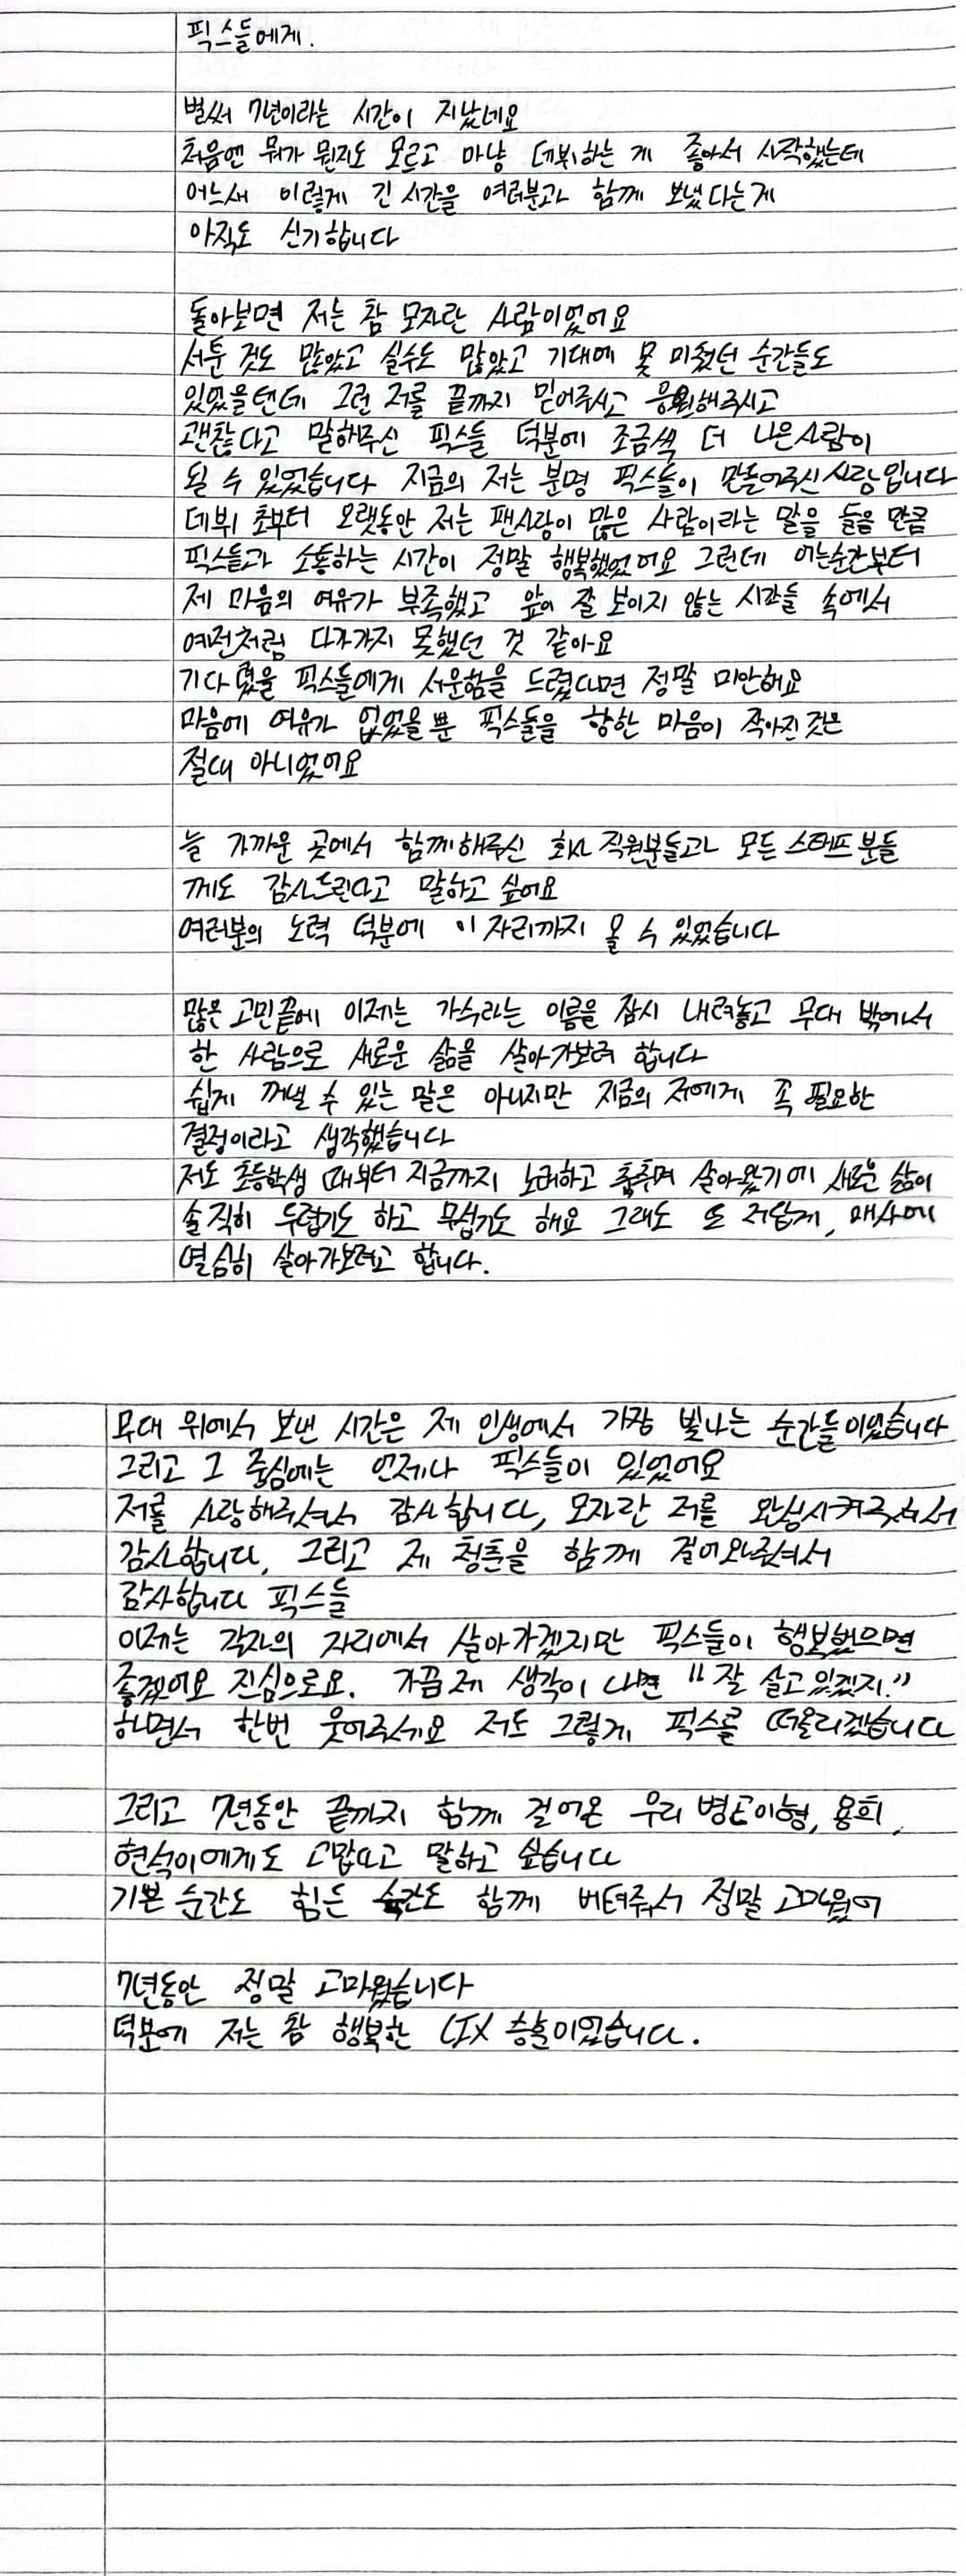 픽스들에게.
벌써 7년이라는 시간이 지났네요
처음엔 뭐가 뭔지도 모르고 마냥 데뷔하는 게 좋아서 시작했는데
어느새 이렇게 긴 시간을 여러분과 함께 보냈다는게
아직도 신기합니다
돌아보면 저는 참 모자란 사람이었어요
서툰 것도 많았고 실수도 많았고 기대에 못 미쳤던 순간들도
있었을텐데 그런 저를 끝까지 믿어주시고 응원해주시고
괜찮다고 말해주신 픽스들 덕분에 조금씩 더 나은사람이
될 수 있었습니다 지금의 저는 분명 픽스들이 만들어주신 사람입니다
데뷔 초부터 오랫동안 저는 팬사랑이 많은 사람이라는 말을 들을 만큼
픽스들과 소통하는 시간이 정말 행복했었어요 그런데 어느순간부터
제 마음의 여유가 부족했고 앞이 잘 보이지 않는 시간들 속에서
예전처럼 다가가지 못했던 것 같아요
기다렸을 픽스들에게 서운함을 드렸다면 정말 미안해요
마음에 여유가 없었을 뿐 픽스들을 향한 마음이 작아진것은
절대 아니었어요
늘 가까운 곳에서 함께해주신 회사 직원분들과 모든 스태프분들
께도 감사드린다고 말하고 싶어요
여러분의 노력 덕분에 이 자리까지 올 수 있었습니다
많은 고민끝에 이제는 가수라는 이름을 잠시 내려놓고 무대 밖에서
한 사람으로 새로운 삶을 살아가보려 합니다
쉽게 꺼낼 수 있는 말은 아니지만 지금의 저에게 꼭 필요한
결정이라고 생각했습니다
저도 초등학생 때부터 지금까지 노래하고 춤추며 살아왔기에 새로운 삶이
솔직히 두렵기도 하고 무섭기도 해요 그래도 또 저답게, 매사에
열심히 살아가보려고 합니다.
무대 위에서 보낸 시간은 제 인생에서 가장 빛나는 순간들이었습니다
그리고 그 중심에는 언제나 픽스들이 있었어요
저를 사랑해주셔서 감사합니다, 모자란 저를 완성시켜주셔서
감사합니다, 그리고 제 청춘을 함께 걸어와주셔서
감사합니다 픽스들
이제는 각자의 자리에서 살아가겠지만 픽스들이 행복했으면
좋겠어요 진심으로요. 가끔 제 생각이 나면 "잘 살고있겠지."
하면서 한번 웃어주세요 저도 그렇게 픽스를 떠올리겠습니다
그리고 7년동안 끝까지 함께 걸어온 우리 병곤이형, 용희,
현석이에게도 고맙다고 말하고 싶습니다
기쁜 순간도 힘든 순간도 함께 버텨줘서 정말 고마웠어
7년동안 정말 고마웠습니다
덕분에 저는 참 행복한 CIX 승훈이었습니다.